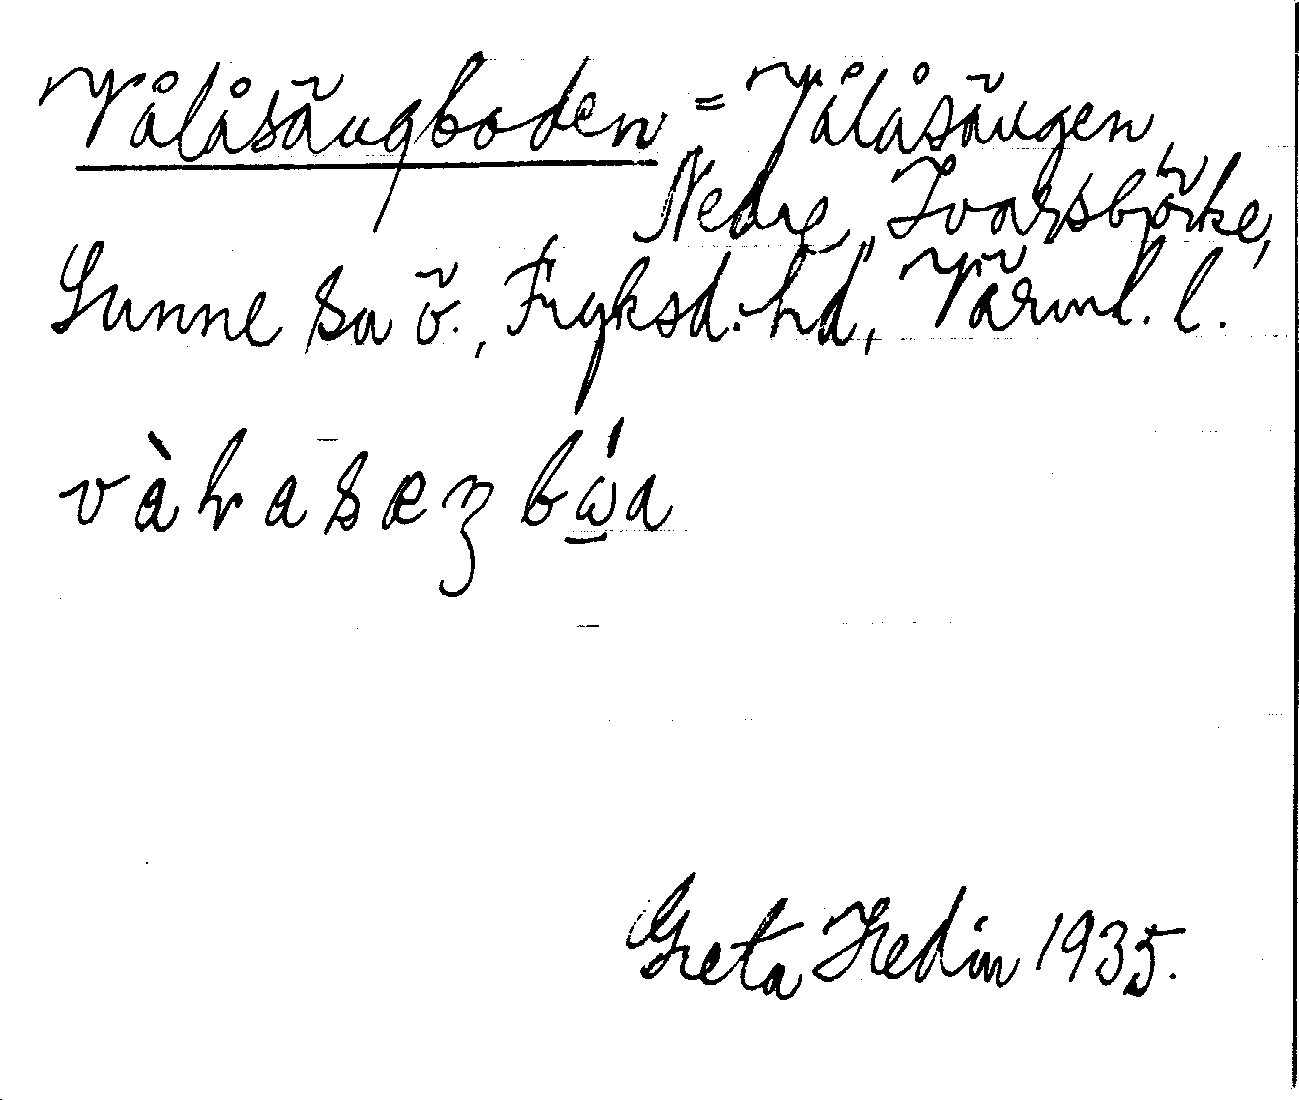 Vålåsängboden = Vålåsängen
Nedre Ivarsbjörke,
Sunne sn ö., Fryksd. hd, Värml. l.
Greta Hedin 1935.